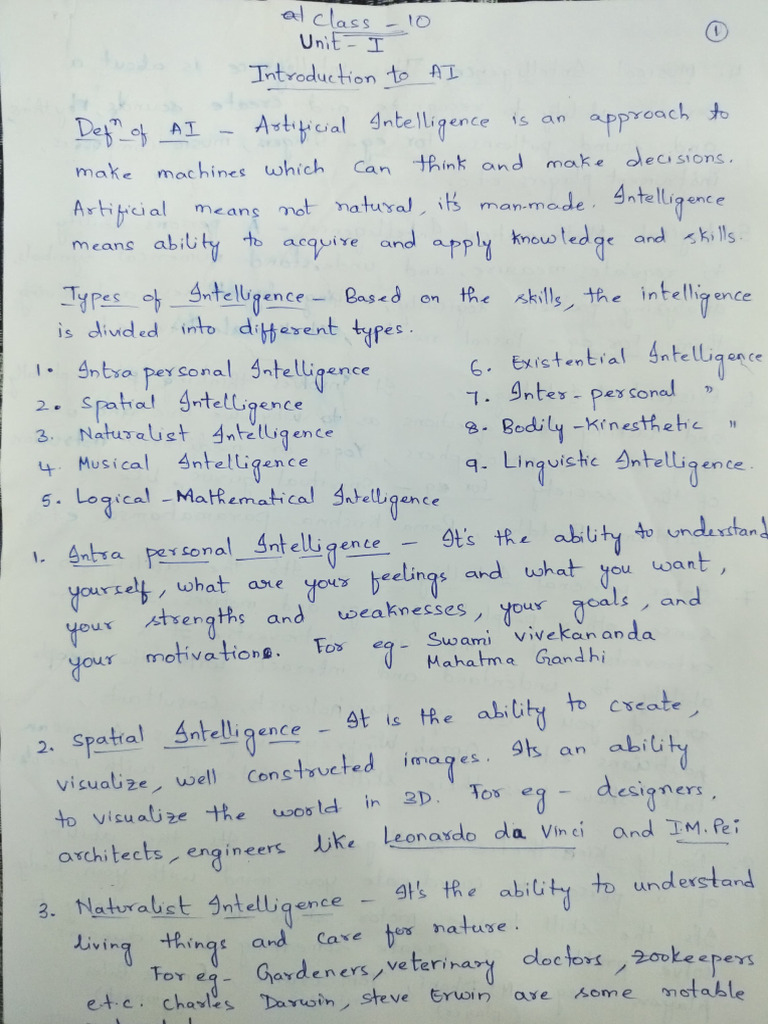 Class - 10
1
Unit - I
Introduction to AI
Defⁿ of AI - Artificial Intelligence is an approach to
make machines which can think and make decisions.
Artificial means not natural, it's man-made. Intelligence
means ability to acquire and apply knowledge and skills.
Types of Intelligence - Based on the skills, the intelligence
is divided into different types.
1. Intra personal Intelligence
2. Spatial Intelligence
3. Naturalist Intelligence
4. Musical Intelligence
5. Logical - Mathematical Intelligence
6. Existential Intelligence
7. Inter - personal "
8. Bodily - Kinesthetic "
9. Linguistic Intelligence.
1. Intra personal Intelligence - It's the ability to understand
yourself, what are your feelings and what you want,
your strengths and weaknesses, your goals, and
your motivations. For eg - Swami vivekananda
Mahatma Gandhi
2. Spatial Intelligence - It is the ability to create,
visualize, well constructed images. Its an ability
to visualize the world in 3D. For eg - designers,
architects, engineers like Leonardo da Vinci and I.M. Pei
3. Naturalist Intelligence - It's the ability to understand
living things and care for nature.
For eg - Gardeners, veterinary doctors, zookeepers
e.t.c. Charles Darwin, Steve Erwin are some notable